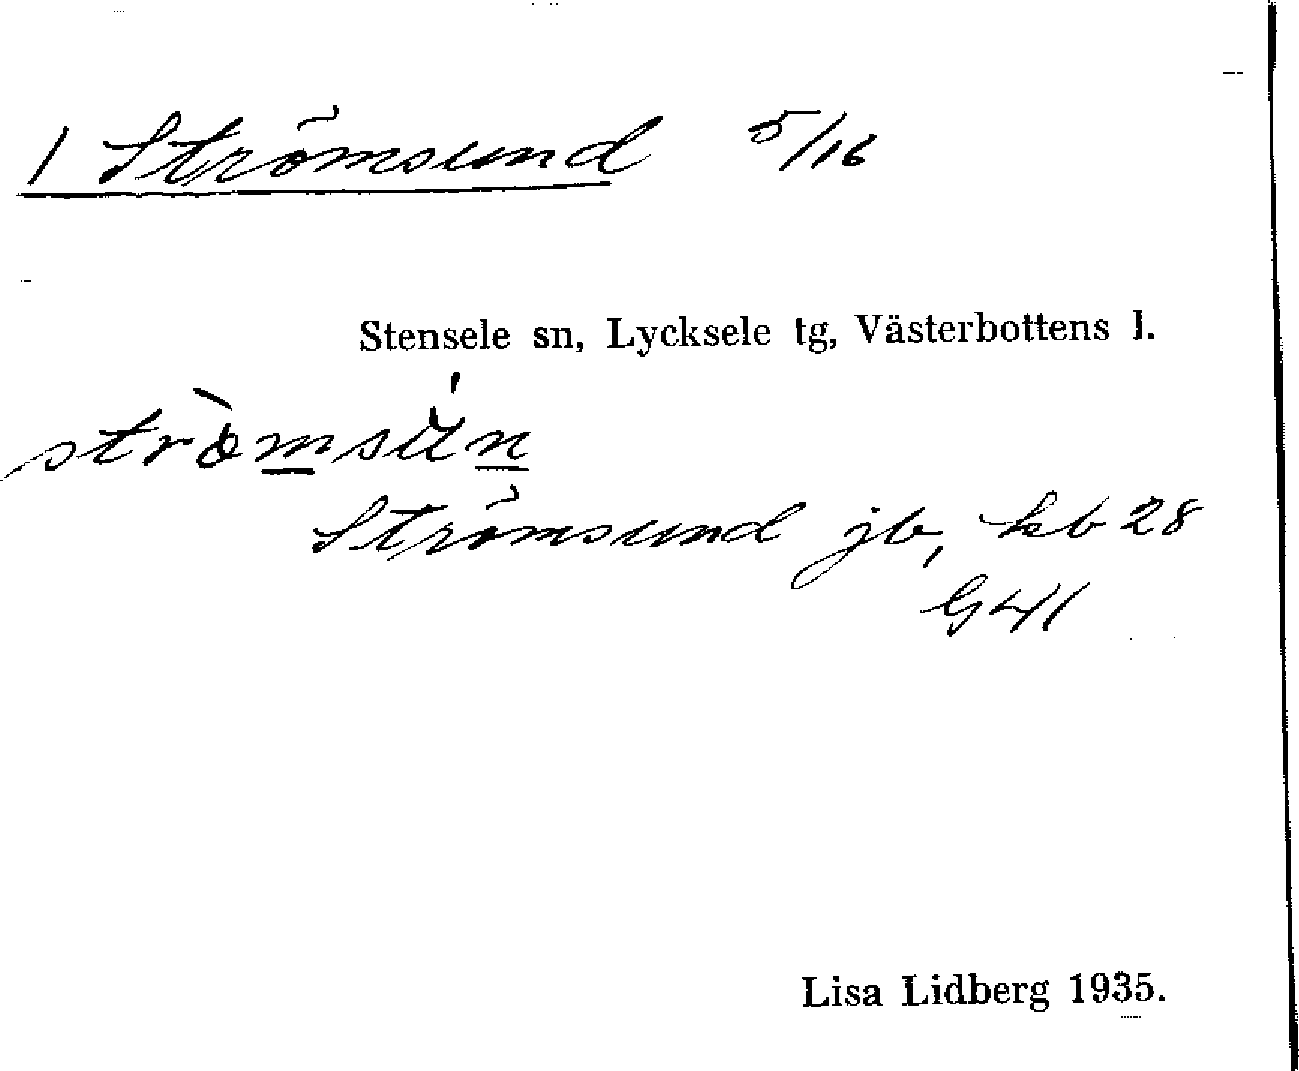 1 Strömsund 5/16
Stensele sn, Lycksele tg, Västerbottens l.
Strömsund jb, kb 28
G 41
Lisa Lidberg 1935.